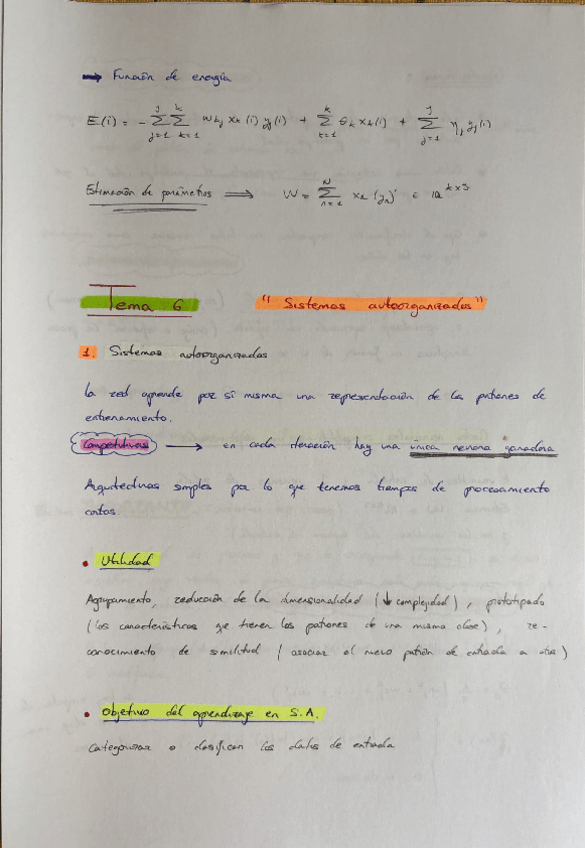 → Función de energía
E(i) = - Σ_{j=1}^{J} Σ_{k=1}^{k} w_{kj} x_k(i) y_j(i) + Σ_{k=1}^{k} θ_k x_k(i) + Σ_{j=1}^{J} η_j y_j(i)
Estimación de parámetros ⟹ W = Σ_{n=1}^{N} x_n (y_n)' ∈ ℝ^{k×J}
Tema 6 "Sistemas autoorganizados"
1. Sistemas autoorganizados
La red aprende por sí misma una representación de los patrones de
entrenamiento.
Competitivas → en cada iteración hay una única neurona ganadora
Arquitecturas simples por lo que tenemos tiempos de procesamiento
cortos.
• Utilidad
Agrupamiento, reducción de la dimensionalidad (↓ complejidad), prototipado
(las características que tienen los patrones de una misma clase), re-
conocimiento de similitud (asociar el nuevo patrón de entrada a otros)
• Objetivo del aprendizaje en S.A.
Categorizar o clasifican los datos de entrada